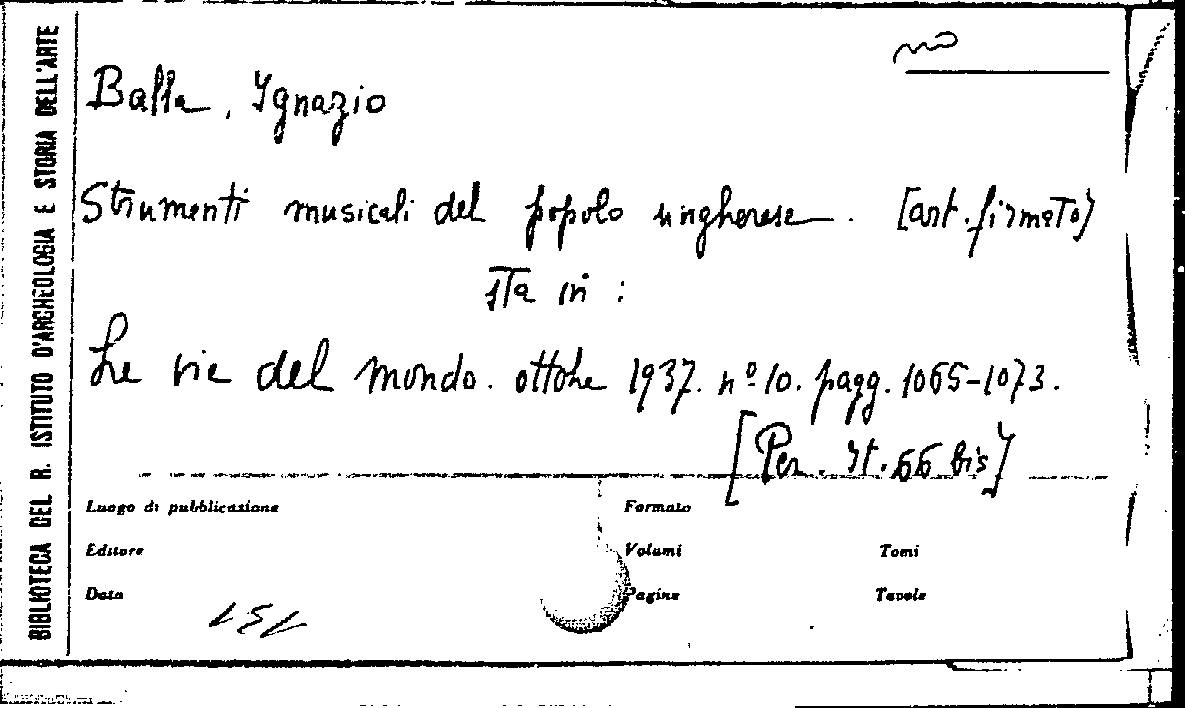 BIBLIOTECA DEL R. ISTITUTO D'ARCHEOLOGIA E STORIA DELL'ARTE
no
Balla, Ignazio
Strumenti musicali del popolo ungherese. [art. firmato]
sta in :
Le vie del mondo. ottobre 1937. nº 10. pagg. 1065-1073.
[Per. It. 66 bis]
Luogo di pubblicazione Formato
Editore Volumi Tomi
Data Pagine Tavole